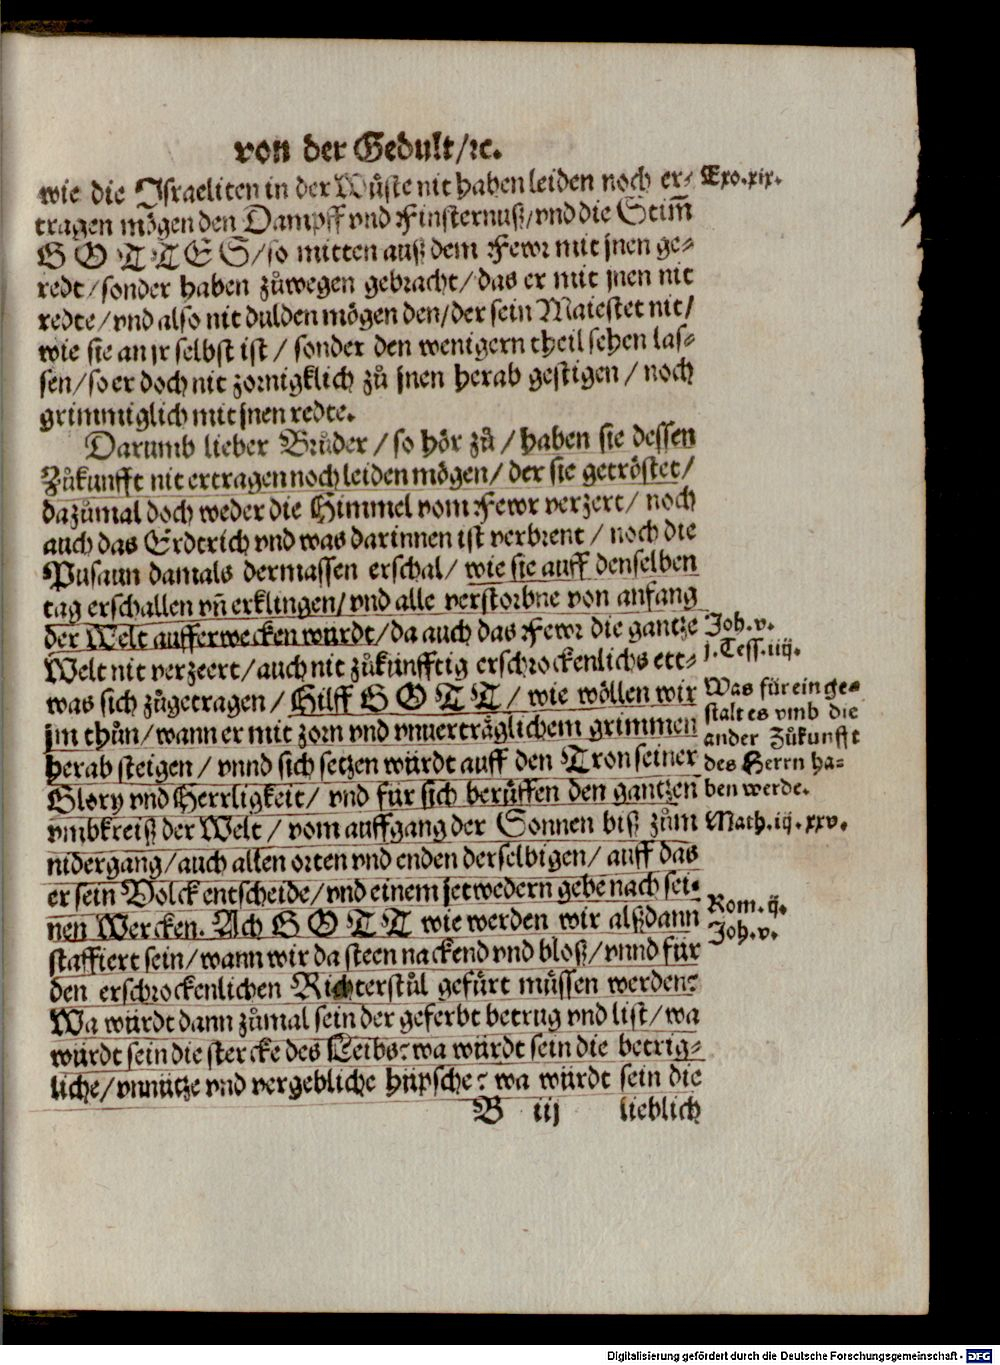 von der Gedult/ꝛc.
wie die Jsraeliten in der Wůste nit haben leiden noch er-
tragen mögen den Dampff vnd Finsternuß/vnd die Stim̃
G O T T E S/so mitten auß dem Fewr mit jnen ge-
redt/sonder haben zůwegen gebracht/das er mit jnen nit
redte/vnd also nit dulden mögen den/der sein Maiestet nit/
wie sie an jr selbst ist/ sonder den wenigern theil sehen las-
sen/so er doch nit zornigklich zů jnen herab gestigen/ noch
grimmiglich mit jnen redte.
Darumb lieber Brůder/so hör zů/haben sie dessen
Zůkunfft nit ertragen noch leiden mögen/ der sie getröstet/
dazůmal doch weder die Himmel vom Fewr verzert/ noch
auch das Erdtrich vnd was darinnen ist verbrent/ noch die
Pusaun damals dermassen erschal/ wie sie auff denselben
tag erschallen vñ erklingen/vnd alle verstorbne von anfang
der Welt aufferwecken würdt/da auch das Fewr die gantze
Welt nit verzeert/auch nit zůkünfftig erschrockenlichs ett-
was sich zůgetragen/ Hilff G O T T/ wie wöllen wir
jm thůn/wann er mit zorn vnd vnuerträglichem grimmen
herab steigen/ vnnd sich setzen würdt auff den Tron seiner
Glory vnd Herrligkeit/ vnd für sich berůffen den gantzen
vmbkreiß der Welt/ vom auffgang der Sonnen biß zům
nidergang/auch allen orten vnd enden derselbigen/ auff das
er sein Volck entscheide/vnd einem jetwedern gebe nach sei-
nen Wercken. Ach G O T T wie werden wir alßdann
staffiert sein/wann wir da steen nackend vnd bloß/vnnd für
den erschrockenlichen Richterstůl gefürt müssen werden?
Wa würdt dann zůmal sein der geferbt betrug vnd list/wa
würdt sein die stercke des Leibs? wa würdt sein die betrig-
liche/vnnütze vnd vergebliche hüpsche? wa würdt sein die
B iij lieblich
Exo.xix.
Joh.v.
j.Tess.iiij.
Was für ein ge-
stalt es vmb die
ander Zůkunfft
des Herrn ha-
ben werde.
Math.iij.xxv.
Rom.ij.
Joh.v.
Digitalisierung gefördert durch die Deutsche Forschungsgemeinschaft - DFG